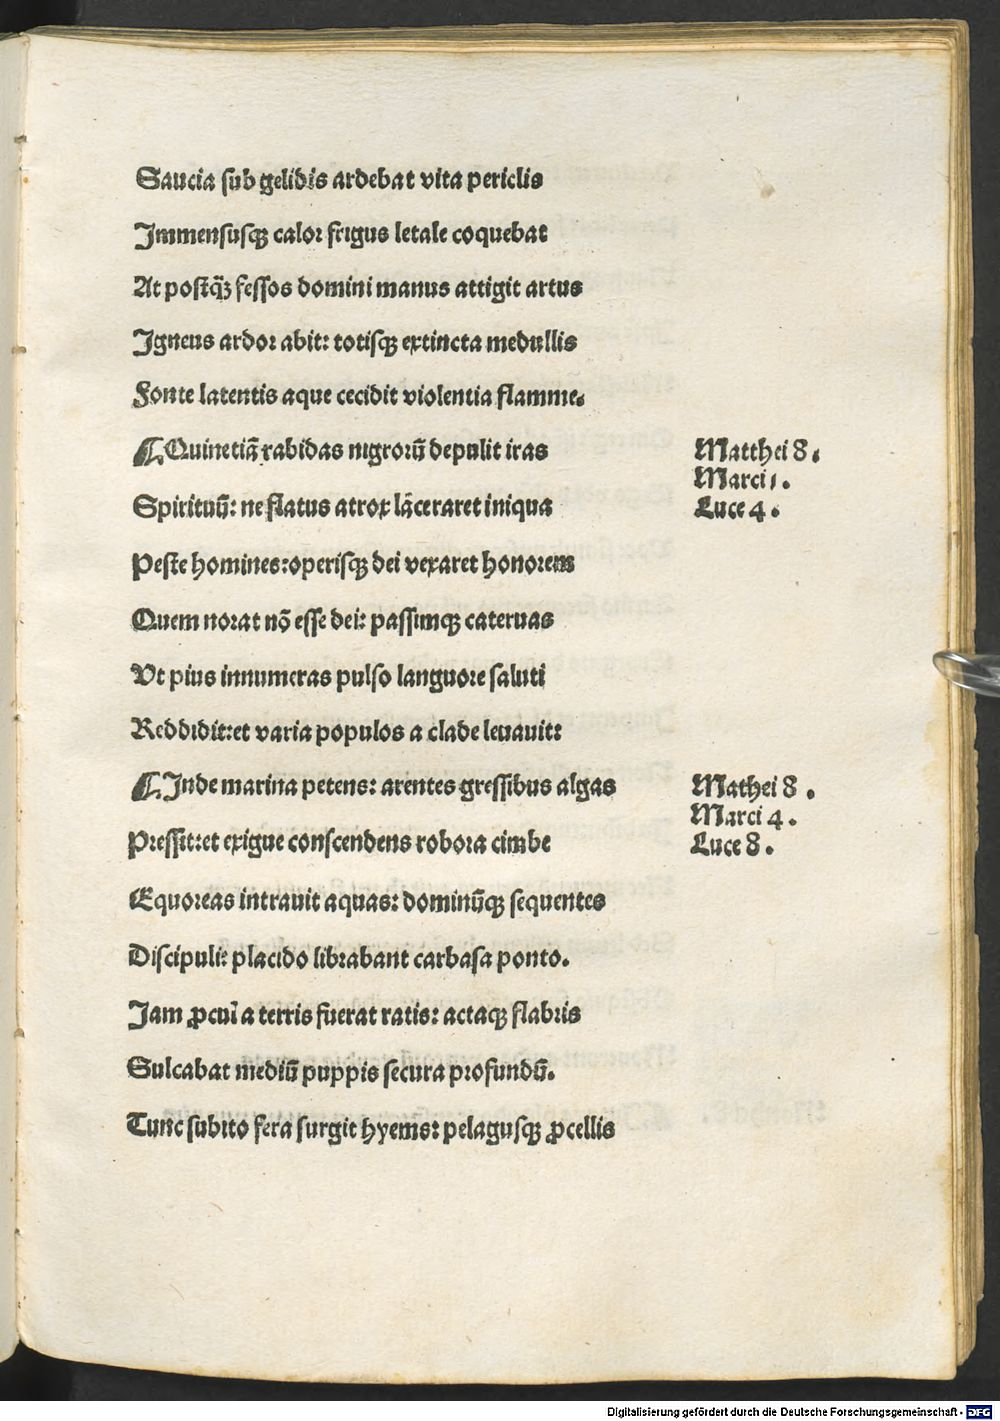 Saucia sub gelidis ardebat vita periclis
Immensusqꝫ calor frigus letale coquebat
At postq̄ꝫ fessos domini manus attigit artus
Igneus ardor abit: totisqꝫ extincta medullis
Fonte latentis aque cecidit violentia flamme.
¶ Quinetiā rabidas nigrorū depulit iras
Matthei 8.
Marci 1.
Spirituū: ne flatus atrox lāceraret iniqua
Luce 4.
Peste homines: operisqꝫ dei vexaret honorem
Quem norat nō esse dei: passimqꝫ cateruas
Vt pius innumeras pulso languore saluti
Reddidit: et varia populos a clade leuauit:
¶ Inde marina petens: arentes gressibus algas
Mathei 8.
Marci 4.
Pressit: et exigue conscendens robora cimbe
Luce 8.
Equoreas intrauit aquas: dominūqꝫ sequentes
Discipuli: placido librabant carbasa ponto.
Jam ꝓcul a terris fuerat ratis: actaqꝫ flabris
Sulcabat mediū puppis secura profundū.
Tunc subito fera surgit hyems: pelagusqꝫ ꝓcellis
Digitalisierung gefördert durch die Deutsche Forschungsgemeinschaft - DFG